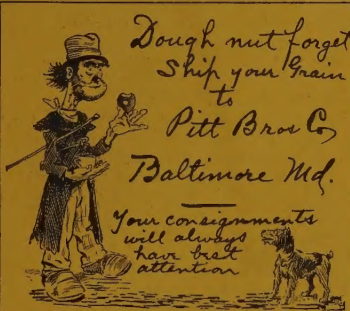 Dough nut forget
Ship your Grain
to
Pitt Bros Co,
Baltimore Md.
Your consignments
will always
have best
attention